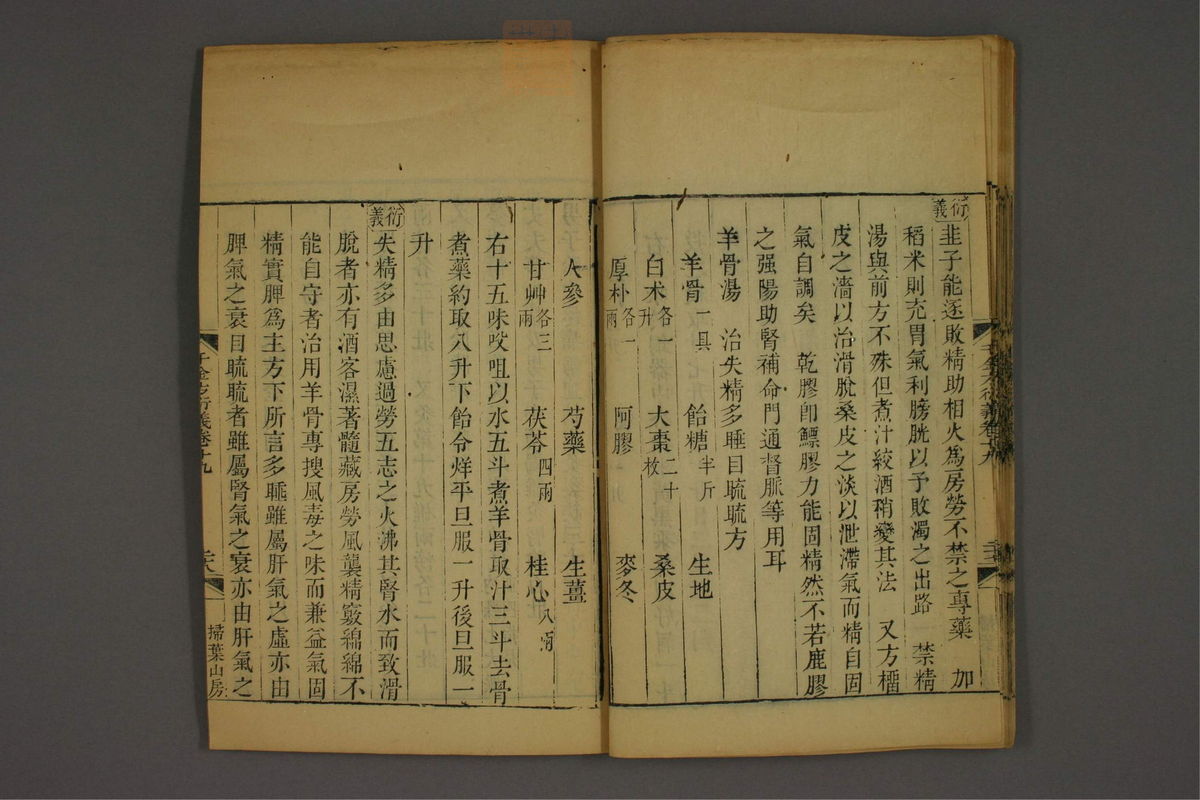 衍義
韭子能逐敗精助相火為房勞不禁之專藥 加
稻米則充胃氣利膀胱以予敗濁之出路 禁精
湯與前方不殊但煮汁絞酒稍變其法 又方櫺
皮之濇以治滑脫桑皮之淡以泄滯氣而精自固
氣自調矣 乾膠卽鰾膠力能固精然不若鹿膠
之强陽助腎補命門通督脈等用耳
羊骨湯 治失精多睡目䀮䀮方
羊骨一具 飴糖半斤 生地
白朮各一升 大棗二十枚 桑皮
厚朴各一兩 阿膠 麥冬
人參 芍藥 生薑
甘艸各三兩 茯苓四兩 桂心八兩
右十五味㕮咀以水五斗煮羊骨取汁三斗去骨
煮藥約取八升下飴令烊平旦服一升後旦服一
升
衍義
失精多由思慮過勞五志之火沸其腎水而致滑
脫者亦有酒客濕著髓藏房勞風襲精竅綿綿不
能自守者治用羊骨專搜風毒之味而兼益氣固
精實脾爲主方下所言多睡雖屬肝氣之虛亦由
脾氣之衰目䀮䀮者雖屬腎氣之衰亦由肝氣之
千金方衍義卷十九
掃葉山房